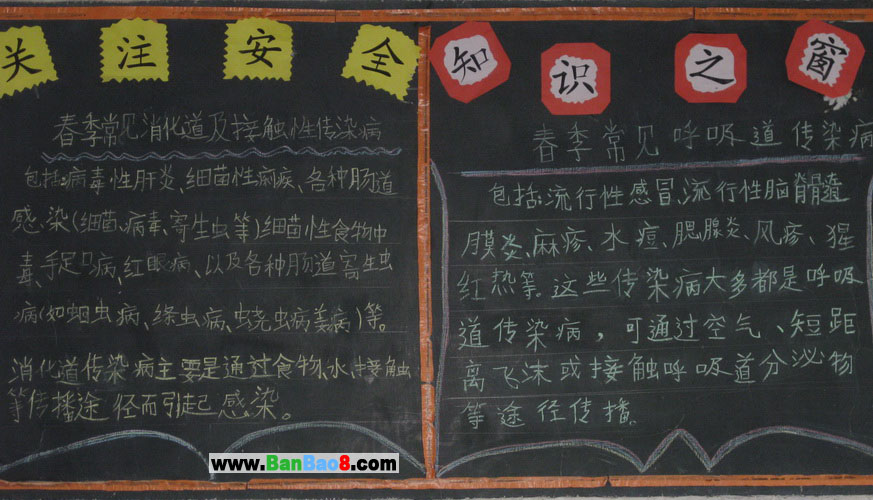 关注安全
春季常见消化道及接触性传染病
包括:病毒性肝炎、细菌性痢疾、各种肠道
感染(细菌、病毒、寄生虫等)细菌性食物中
毒、手足口病、红眼病、以及各种肠道寄生虫
病(如蛔虫病、绦虫病、蛲虫病姜病)等。
消化道传染病主要是通过食物、水、接触
等传播途径而引起感染。
知识之窗
春季常见呼吸道传染病
包括:流行性感冒、流行性脑脊髓
膜炎、麻疹、水痘、腮腺炎、风疹、猩
红热等。这些传染病大多都是呼吸
道传染病，可通过空气、短距
离飞沫或接触呼吸道分泌物
等途径传播.
www.BanBao8.com